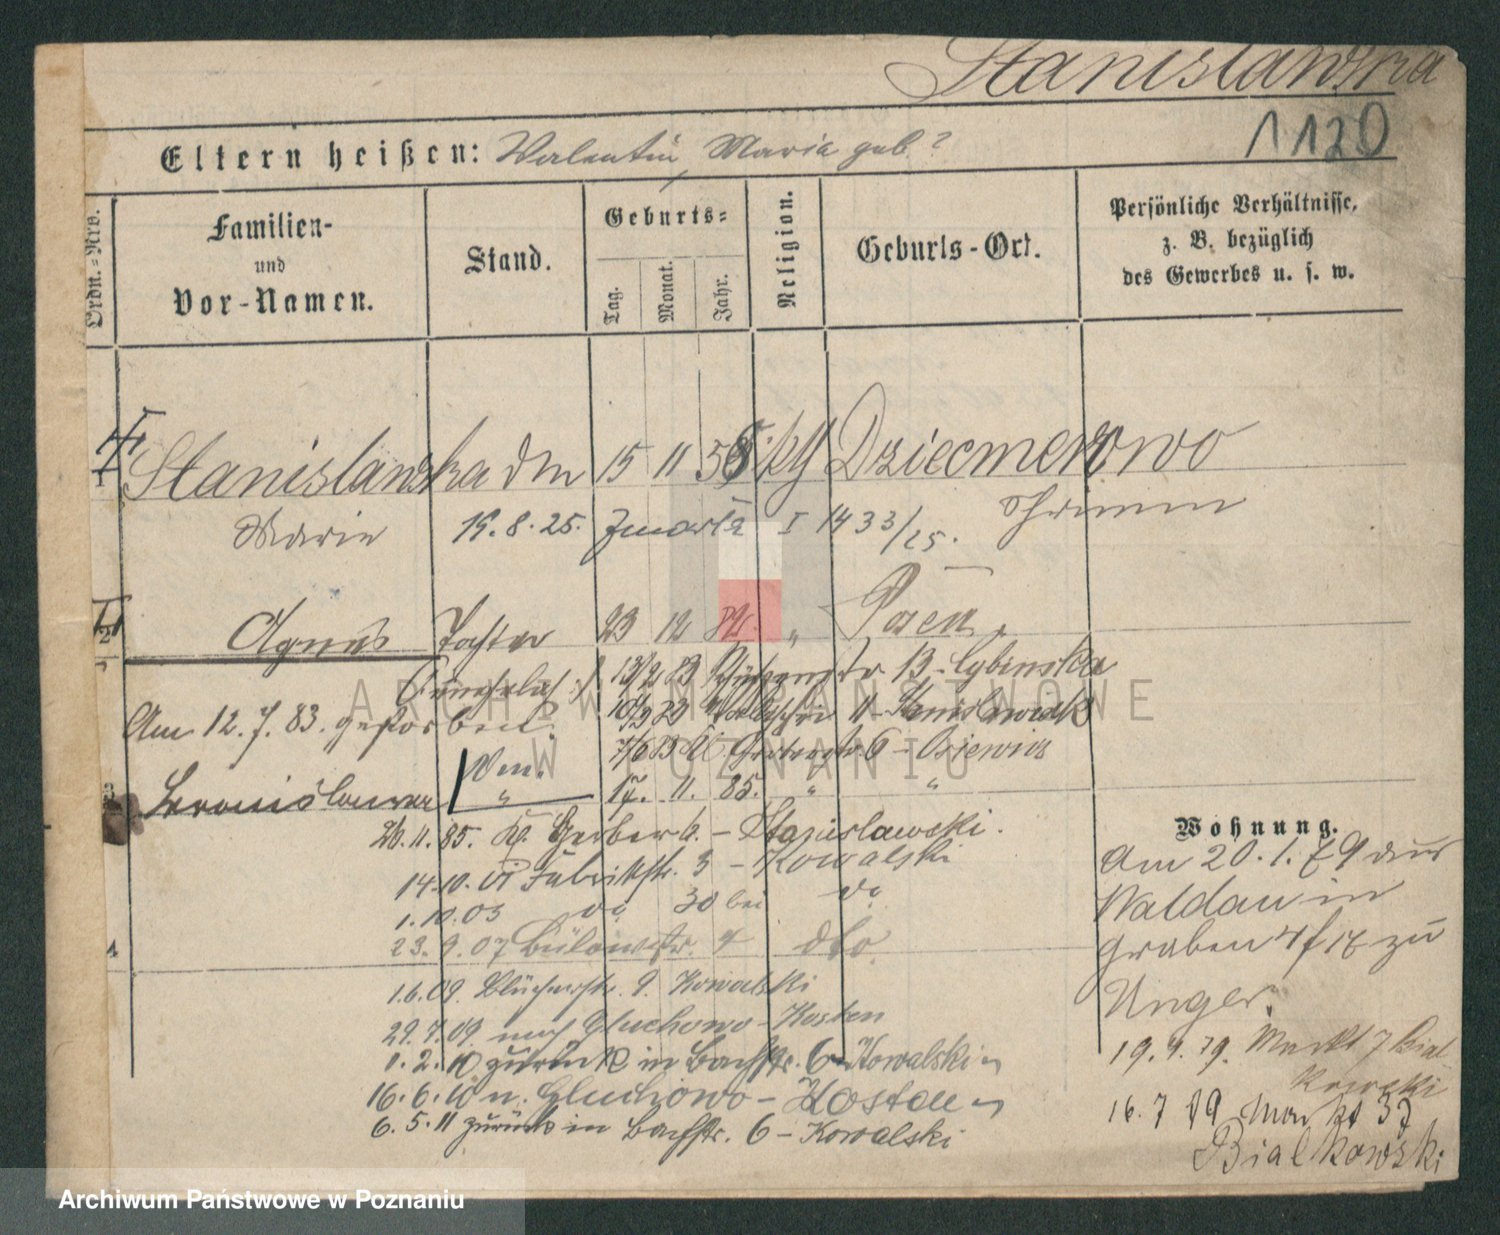 Stanislawska
1120
Eltern heißen: Valentin Maria geb?
Ordn.-Nro.
Familien-
und
Vor-Namen.
Stand.
Geburts-
Tag.
Monat.
Jahr.
Religion.
Geburts-Ort.
Persönliche Verhältnisse,
z. B. bezüglich
des Gewerbes u. s. w.
Stanislawska 15 11 58 Dziecmerowo
Marie 15. 8. 25. Zmarła I 1433/25. Schrimm
2 Agnes Tochter 23 12 82. " Posen
13/2 83 13 - Cybinska
Am 12. 7. 83. gestorben. 11 - Stanislawski
6 - Osiewicz
3 17. 11. 85. " "
26. 11. 85. Gerber 6. - Stanislawski.
14.10. 01 Fabrikstr. 3 - Kowalski
1. 10. 03 do 30 bei do
4 23. 9. 07 Bülowstr. 4 dto.
1.6.09. Blücherstr. 9. Kowalski
29.7.09. nach Gluchowo - Kosten
1. 2. 10 zurück in Bachstr. 6 - Kowalski
16. 6. 10 n. Gluchowo - Kosten
6. 5. 11 zurück in Bachstr. 6 - Kowalski
Wohnung.
Am 20. 1. 79 aus
Waldau in
Graben 4 f 17 zu
Unger.
19. 4. 79. Markt 7 Bial
kowski
16. 7 79 Markt 37
Bialkowski
ARCHIWUM PAŃSTWOWE
W POZNANIU
Archiwum Państwowe w Poznaniu